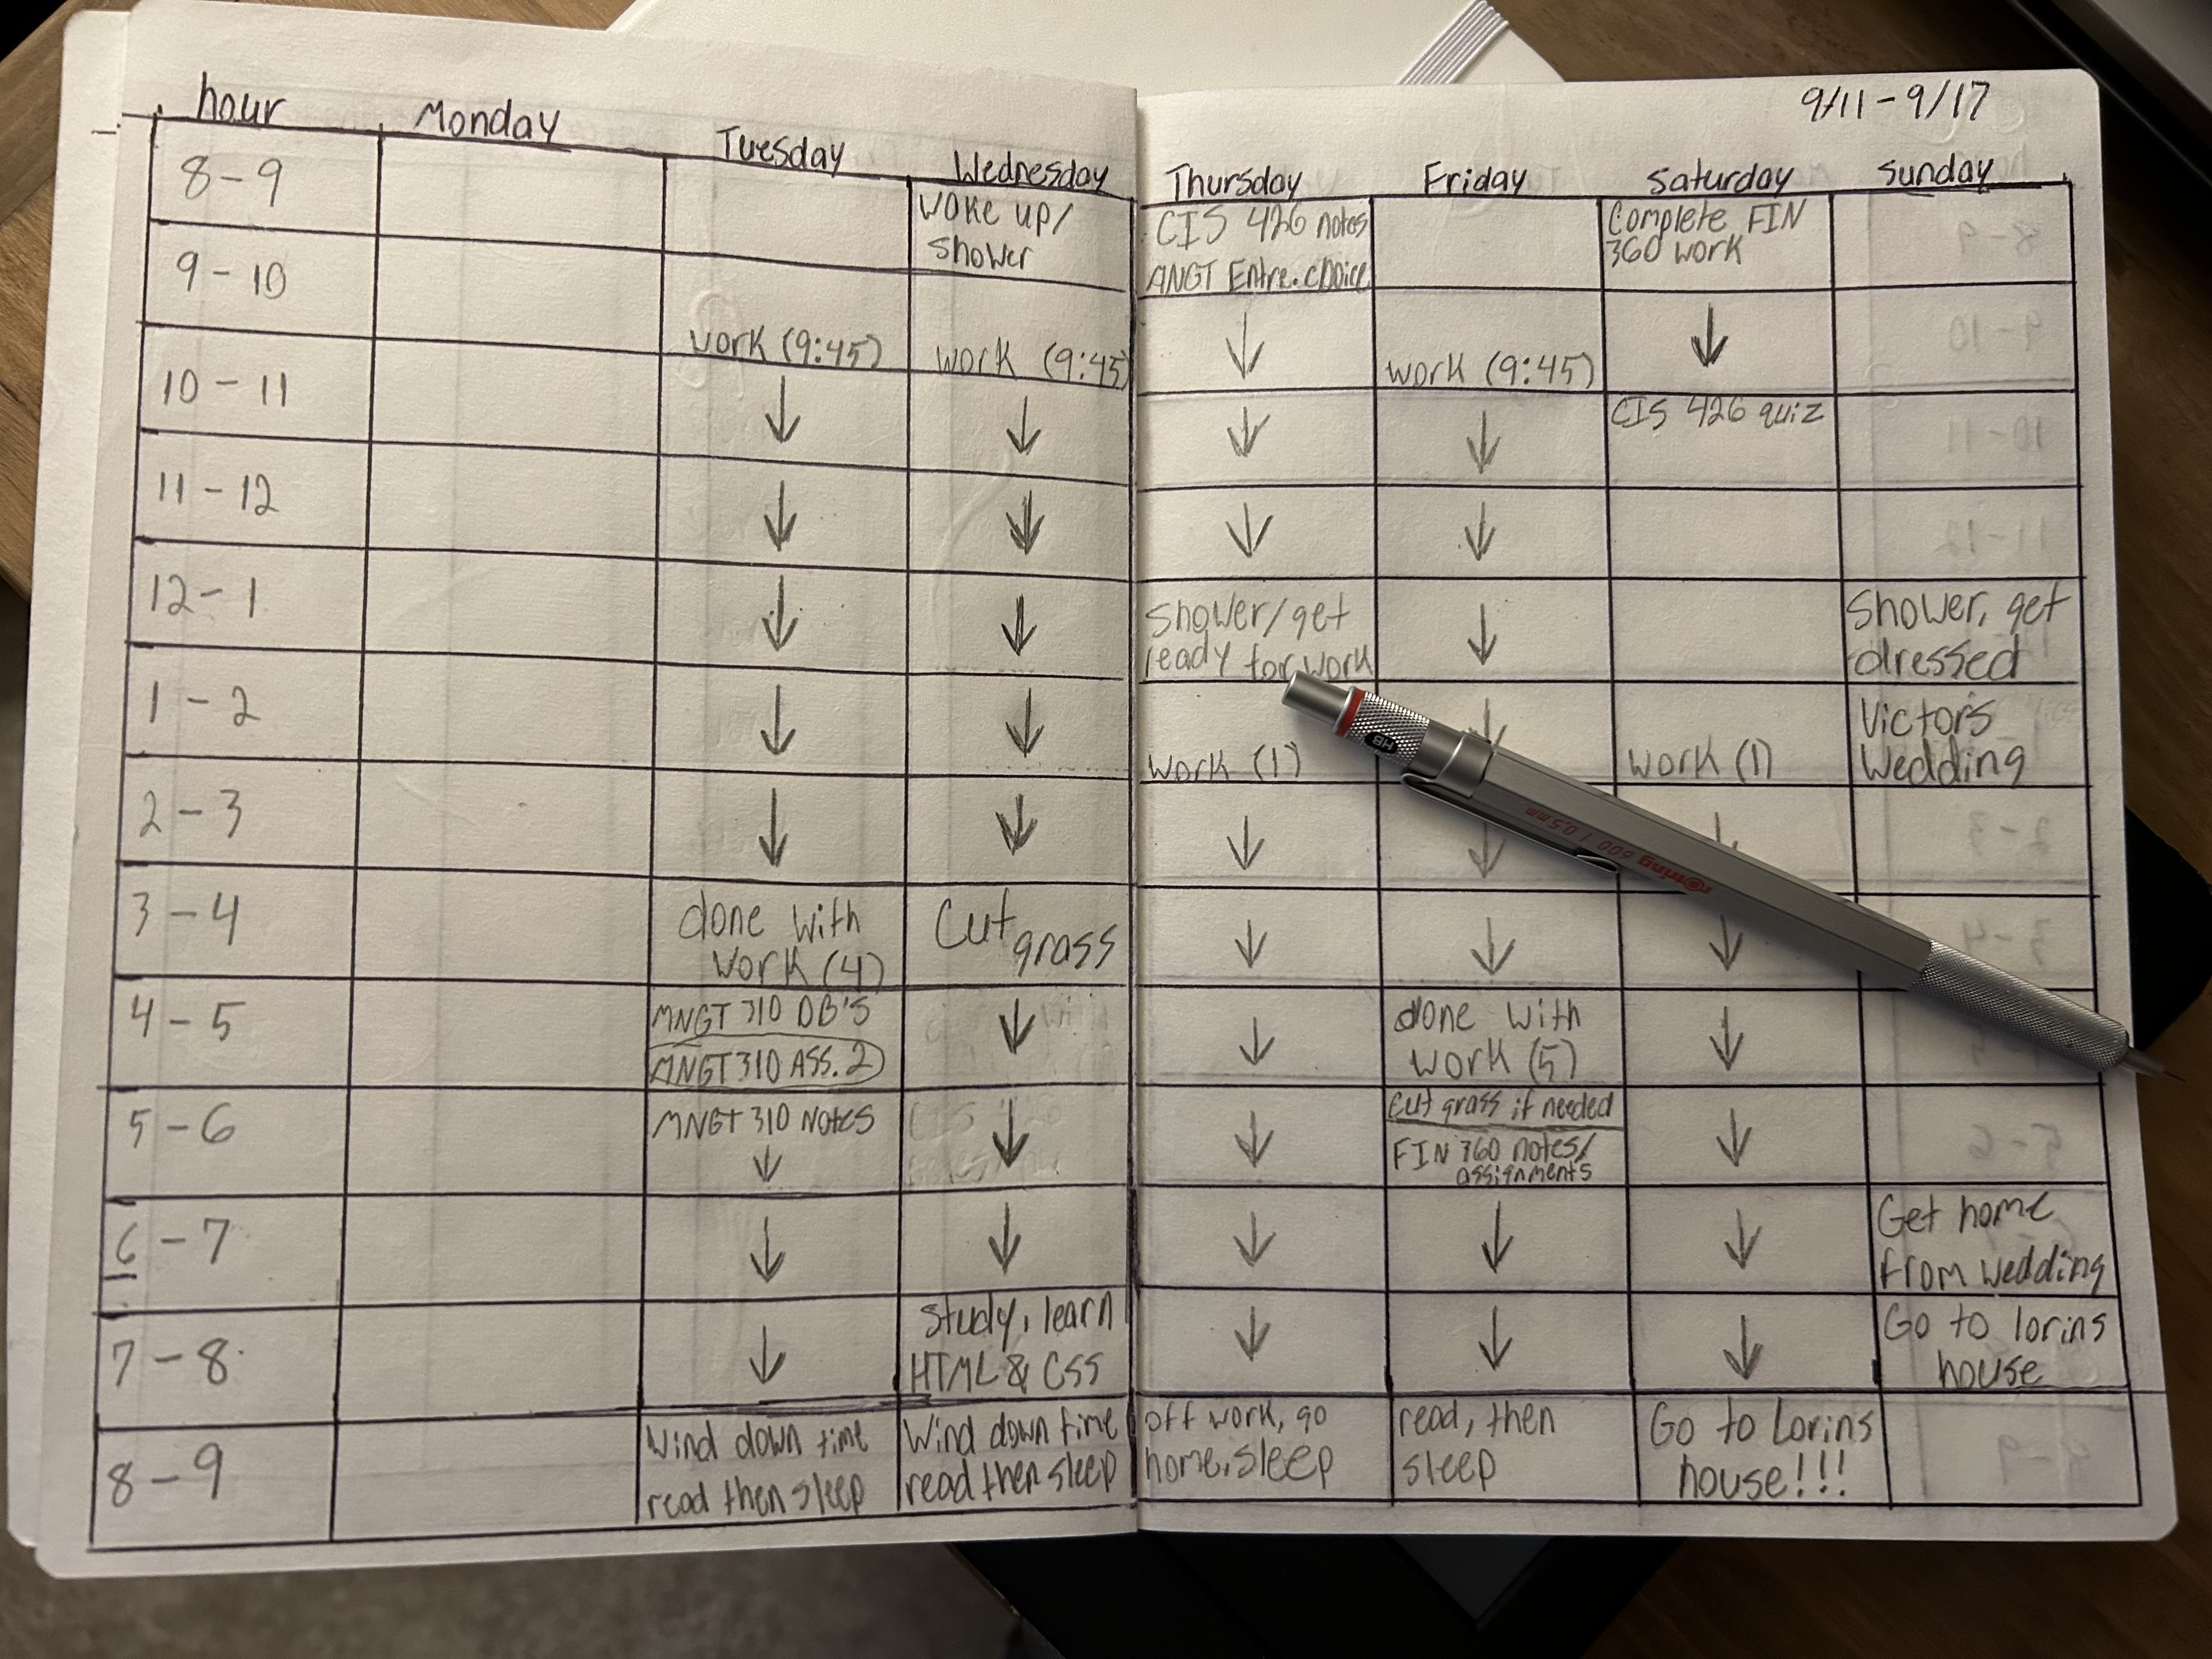 9/11 - 9/17
hour Monday Tuesday Wednesday Thursday Friday Saturday Sunday
8 - 9
woke up/
shower
CIS 426 notes
MNGT Entre. choice
Complete FIN
360 work
9 - 10
work (9:45)
work (9:45)
↓
work (9:45)
↓
10 - 11
↓
↓
↓
↓
CIS 426 quiz
11 - 12
↓
↓
↓
↓
12 - 1
↓
↓
Shower/get
ready for work
↓
Shower, get
dressed
1 - 2
↓
↓
work (1)
↓
work (1)
Victor's
Wedding
2 - 3
↓
↓
↓
↓
↓
3 - 4
done with
work (4)
Cut
grass
↓
↓
↓
4 - 5
MNGT 310 DB's
MNGT 310 ASS. 2
↓
↓
done with
work (5)
↓
5 - 6
MNGT 310 Notes
↓
↓
↓
cut grass if needed
FIN 360 notes/
assignments
↓
6 - 7
↓
↓
↓
↓
↓
Get home
from wedding
7 - 8
↓
study, learn
HTML & CSS
↓
↓
↓
Go to lorins
house
8 - 9
Wind down time
read then sleep
Wind down time
read then sleep
off work, go
home, sleep
read, then
sleep
Go to Lorins
house!!!
HB
rOtring 600 / 0,5 mm